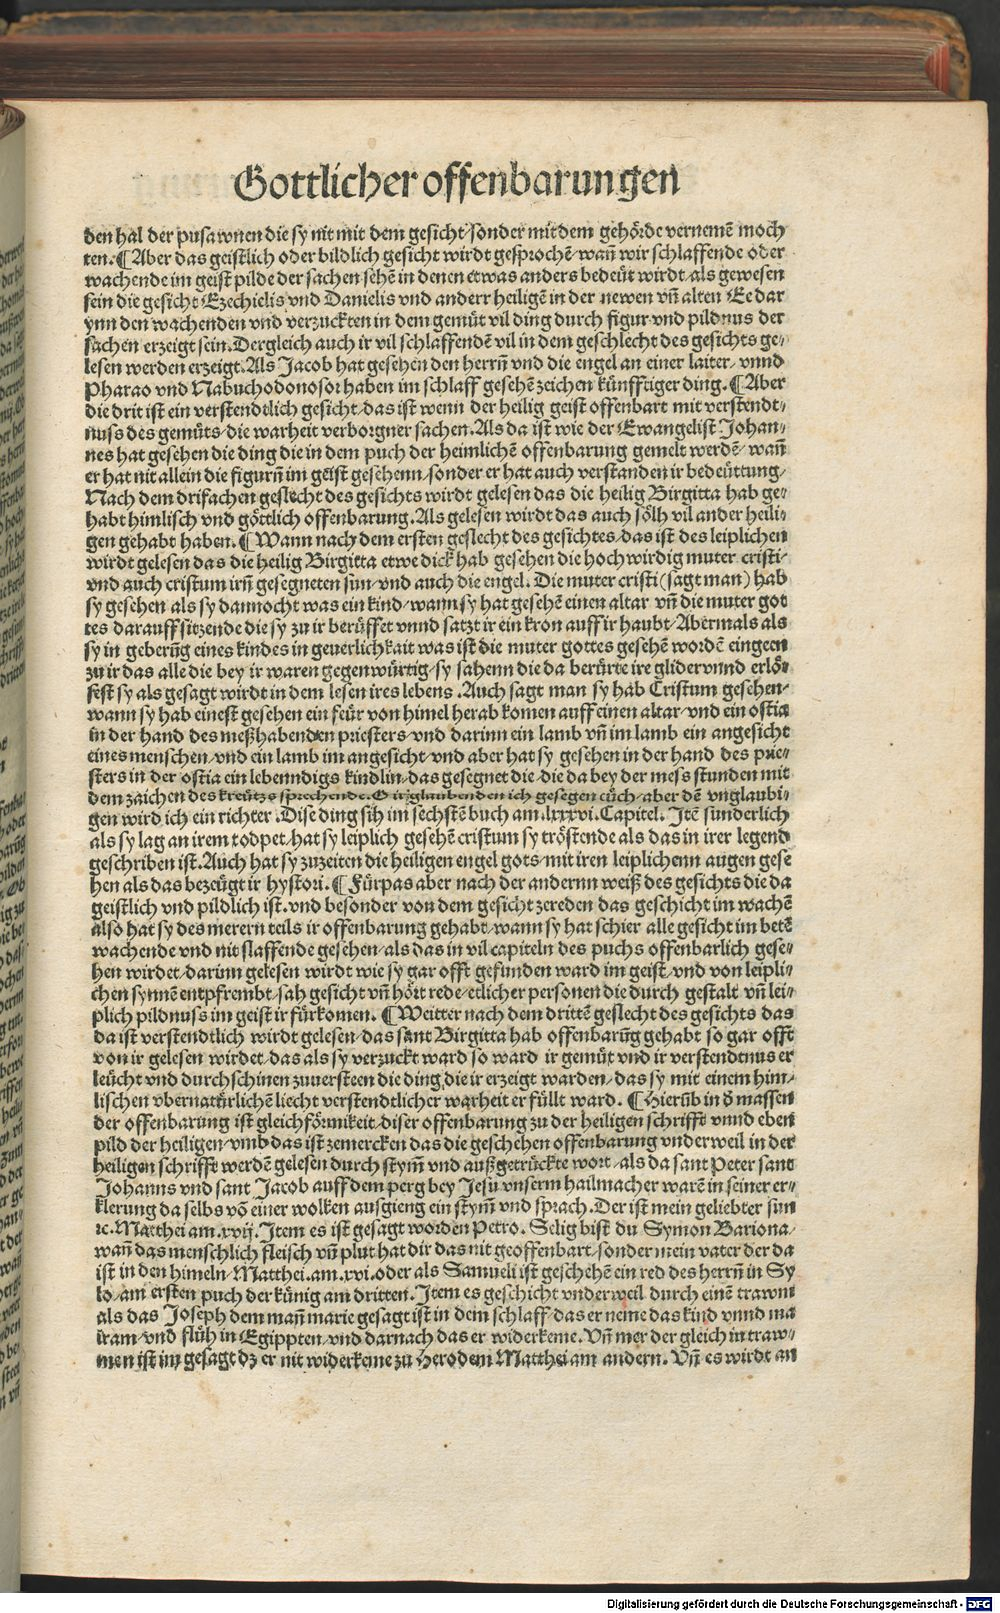 Gottlicher offenbarungen
den hal der pusawnen die sy nit mit dem gesicht/sonder mit dem gehörde vernemē moch
ten.¶Aber das geistlich oder bildlich gesicht wirdt gesprochē/wañ wir schlaffende oder
wachende im geist pilde der sachen sehē in denen etwas anders bedeüt wirdt als gewesen
sein die gesicht Ezechielis vnd Danielis vnd anderr heiligē in der newen vñ alten Ee dar
ynn den wachenden vnd verzuckten in dem gemüt vil ding durch figur vnd pildnus der
sachen erzeigt sein.Dergleich auch ir vil schlaffendē vil in dem geschlecht des gesichts ge/
lesen werden erzeigt.Als Jacob hat gesehen den herrñ vnd die engel an einer laiter/vnnd
Pharao vnd Nabuchodonosor haben im schlaff gesehē zeichen künfftiger ding.¶Aber
die drit ist ein verstendtlich gesicht/das ist wenn der heilig geist offenbart mit verstendt/
nuss des gemüts/die warheit verborgner sachen.Als da ist wie der Ewangelist Johan/
nes hat gesehen die ding die in dem puch der heimlichē offenbarung gemelt werdē/wañ
er hat nit allein die figurñ im geist gesehenn/sonder er hat auch verstanden ir bedeüttung/
Nach dem drifachen geslecht des gesichts wirdt gelesen das die heilig Birgitta hab ge/
habt himlisch vnd göttlich offenbarung.Als gelesen wirdt das auch sölh vil ander heili/
gen gehabt haben.¶Wann nach dem ersten geslecht des gesichtes/das ist des leiplichen
wirdt gelesen das die heilig Birgitta etwe dick hab gesehen die hochwirdig muter cristi/
vnd auch cristum irñ gesegneten sun/vnd auch die engel. Die muter cristi (sagt man) hab
sy gesehen als sy dannocht was ein kind/wann sy hat gesehē einen altar vñ die muter got
tes darauff sitzende die sy zu ir berüffet vnnd satzt ir ein kron auff ir haubt/Abermals als
sy in geberūg eines kindes in geuerlichkait was ist die muter gottes gesehē wordē eingeen
zu ir das alle die bey ir waren gegenwürtig/sy sahenn die da berürte ire glider vnnd erlö/
sest sy als gesagt wirdt in dem lesen ires lebens.Auch sagt man sy hab Cristum gesehen/
wann sy hab einest gesehen ein feür von himel herab komen auff einen altar/vnd ein ostia
in der hand des meßhabenden priesters/vnd darinn ein lamb vñ im lamb ein angesicht
eines menschen/vnd ein lamb im angesicht/vnd aber hat sy gesehen in der hand des prie/
sters in der ostia ein lebenndigs kindlin/das gesegnet die/die da bey der mess stunden mit
dem zaichen des kreützs sprechende.O ir glaubenden ich gesegen eüch/aber dē vnglaubi/
gen wird ich ein richter.Dise ding sih im sechstē buch am.lxxxvi.Capitel.Itē sunderlich
als sy lag an irem todpet/hat sy leiplich gesehē cristum sy tröstende als das in irer legend
geschriben ist.Auch hat sy zuzeiten die heiligen engel gots/mit iren leiplichenn augen gese
hen als das bezeügt ir hystori.¶Fürpas aber nach der andernn weiß des gesichts die da
geistlich vnd pildlich ist.vnd besonder von dem gesicht zereden das geschicht im wachē
also hat sy des merern teils ir offenbarung gehabt/wann sy hat schier alle gesicht im betē
wachende vnd nit slaffende gesehen/als das in vil capiteln des puchs offenbarlich gese/
hen wirdet/darinn gelesen wirdt wie sy gar offt gefunden ward im geist/vnd von leipli/
chen synnē entpfrembt/sah gesicht vñ hört rede/etlicher personen die durch gestalt vñ lei/
plich pildnuss im geist ir fürkomen.¶Weitter nach dem drittē geslecht des gesichts das
da ist verstendtlich wirdt gelesen/das sant Birgitta hab offenbarūg gehabt so gar offt
von ir gelesen wirdet/das als sy verzuckt ward so ward ir gemüt vnd ir verstendtnus er
leücht vnd durchschinen zuuersteen die ding/die ir erzeigt warden/das sy mit einem him/
lischen vbernatürlichē liecht verstendtlicher warheit erfüllt ward.¶Hierūb in d massen
der offenbarung ist gleichförmikeit/diser offenbarung zu der heiligen schrifft vnnd eben
pild der heiligen/vmb das ist zemercken das die geschehen offenbarung vnderweil in der
heiligen schrifft werdē gelesen durch stym̃ vnd außgetrückte wort/als da sant Peter sant
Johanns vnd sant Jacob auff dem perg bey Jesu vnserm hailmacher warē in seiner er/
klerung da selbs vō einer wolken ausgieng ein stym̃ vnd sprach.Der ist mein geliebter sun
rc.Matthei am.xvij.Item es ist gesagt worden Petro.Selig bist du Symon Bariona/
wañ das menschlich fleisch vñ plut hat dir das nit geoffenbart/sonder mein vater der da
ist in den himeln/Matthei.am.xvi.oder als Samueli ist geschehē ein red des herrñ in Sy
lo/am ersten puch der künig am dritten.Item es geschicht vnderweil durch einē trawm
als das Joseph dem mañ marie gesagt ist in dem schlaff/das er neme das kind vnnd ma
riam/vnd flüh in Egippten/vnd darnach das er widerkeme.Vñ mer der gleich in traw/
men ist im gesagt dz er nit widerkeme zu Herodem Matthei am andern. Vñ es wirdt an
Digitalisierung gefördert durch die Deutsche Forschungsgemeinschaft - DFG